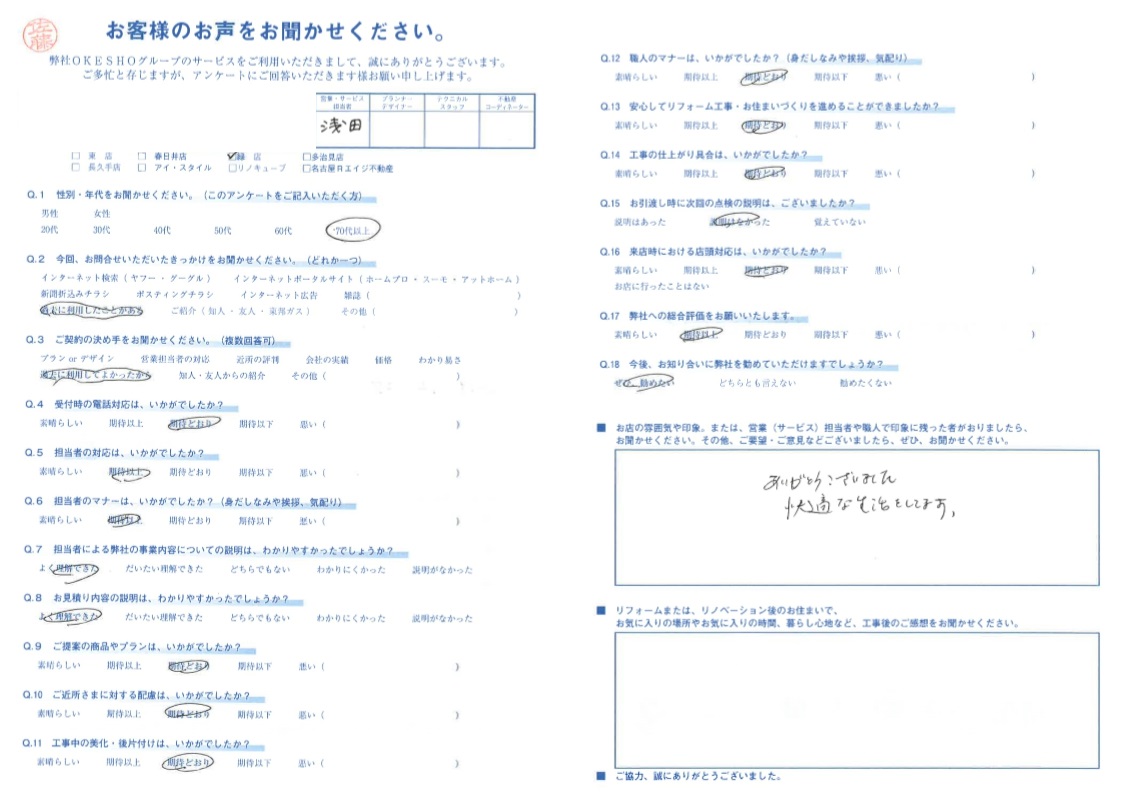 佐藤
お客様のお声をお聞かせください。
弊社OKESHOグループのサービスをご利用いただきまして、誠にありがとうございます。
ご多忙と存じますが、アンケートにご回答いただきます様お願い申し上げます。
営業・サービス担当者 プランナー・デザイナー テクニカルスタッフ 不動産コーディネーター
浅田
□ 東 店 □ 春日井店 ☑ 緑 店 □多治見店
□ 長久手店 □ アイ・スタイル □リノキューブ □名古屋Rエイジ不動産
Q.1 性別・年代をお聞かせください。（このアンケートをご記入いただく方）
男性 女性
20代 30代 40代 50代 60代 70代以上
Q.2 今回、お問合せいただいたきっかけをお聞かせください。（どれか一つ）
インターネット検索（ ヤフー・グーグル ） インターネットポータルサイト（ ホームプロ・スーモ・アットホーム ）
新聞折込みチラシ ポスティングチラシ インターネット広告 雑誌（ ）
過去に利用したことがある ご紹介（ 知人・友人・東邦ガス ） その他（ ）
Q.3 ご契約の決め手をお聞かせください。（複数回答可）
プラン or デザイン 営業担当者の対応 近所の評判 会社の実績 価格 わかり易さ
過去に利用してよかったから 知人・友人からの紹介 その他（ ）
Q.4 受付時の電話対応は、いかがでしたか？
素晴らしい 期待以上 期待どおり 期待以下 悪い（ ）
Q.5 担当者の対応は、いかがでしたか？
素晴らしい 期待以上 期待どおり 期待以下 悪い（ ）
Q.6 担当者のマナーは、いかがでしたか？（身だしなみや挨拶、気配り）
素晴らしい 期待以上 期待どおり 期待以下 悪い（ ）
Q.7 担当者による弊社の事業内容についての説明は、わかりやすかったでしょうか？
よく理解できた だいたい理解できた どちらでもない わかりにくかった 説明がなかった
Q.8 お見積り内容の説明は、わかりやすかったでしょうか？
よく理解できた だいたい理解できた どちらでもない わかりにくかった 説明がなかった
Q.9 ご提案の商品やプランは、いかがでしたか？
素晴らしい 期待以上 期待どおり 期待以下 悪い（ ）
Q.10 ご近所さまに対する配慮は、いかがでしたか？
素晴らしい 期待以上 期待どおり 期待以下 悪い（ ）
Q.11 工事中の美化・後片付けは、いかがでしたか？
素晴らしい 期待以上 期待どおり 期待以下 悪い（ ）
Q.12 職人のマナーは、いかがでしたか？（身だしなみや挨拶、気配り）
素晴らしい 期待以上 期待どおり 期待以下 悪い（ ）
Q.13 安心してリフォーム工事・お住まいづくりを進めることができましたか？
素晴らしい 期待以上 期待どおり 期待以下 悪い（ ）
Q.14 工事の仕上がり具合は、いかがでしたか？
素晴らしい 期待以上 期待どおり 期待以下 悪い（ ）
Q.15 お引渡し時に次回の点検の説明は、ございましたか？
説明はあった 説明はなかった 覚えていない
Q.16 来店時における店頭対応は、いかがでしたか？
素晴らしい 期待以上 期待どおり 期待以下 悪い（ ）
お店に行ったことはない
Q.17 弊社への総合評価をお願いいたします。
素晴らしい 期待以上 期待どおり 期待以下 悪い（ ）
Q.18 今後、お知り合いに弊社を勧めていただけますでしょうか？
ぜひ、勧めたい どちらとも言えない 勧めたくない
■ お店の雰囲気や印象。または、営業（サービス）担当者や職人で印象に残った者がおりましたら、
お聞かせください。その他、ご要望・ご意見などございましたら、ぜひ、お聞かせください。
ありがとうございました
快適な生活をしてます。
■ リフォームまたは、リノベーション後のお住まいで、
お気に入りの場所やお気に入りの時間、暮らし心地など、工事後のご感想をお聞かせください。
■ ご協力、誠にありがとうございました。